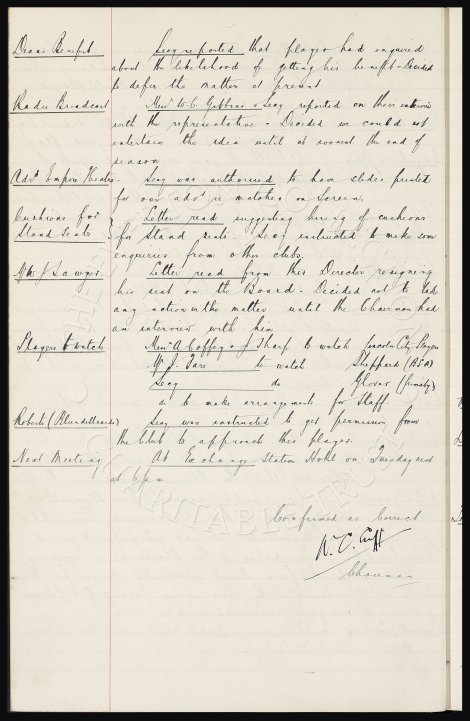 Deans Benefit Secy reported that player had enquired
about the likelihood of getting his benefit - Decided
to defer the matter at present
Radio Broadcast Messrs W. C. Gibbins & Secy reported on their interview
with the representative - Decided we could not
entertain the idea until at soonest the end of
season
Advt Empire Theatre. Secy was authorised to have slides printed
for our advt re matches on Screen.
Cushions for Letter read suggesting hiring of cushions
Stand Seats for Stand seats. Secy instructed to make some
enquiries from other clubs.
Mr W J Sawyer. Letter read from this Director resigning
his seat on the Board. Decided not to take
any action in the matter until the Chairman had
an interview with him
Players to watch Messrs A Coffey & J Sharp to watch Lincoln City Players
Mr J. Fare to watch Sheppard
Secy do Glover
do to make arrangements for Staff
Roberts Secy was instructed to get permission from
the Club to approach this player.
Next Meeting At Exchange Station Hotel on Tuesday next
at 6 p m
Confirmed as Correct
W. C. Cuff
Chairman